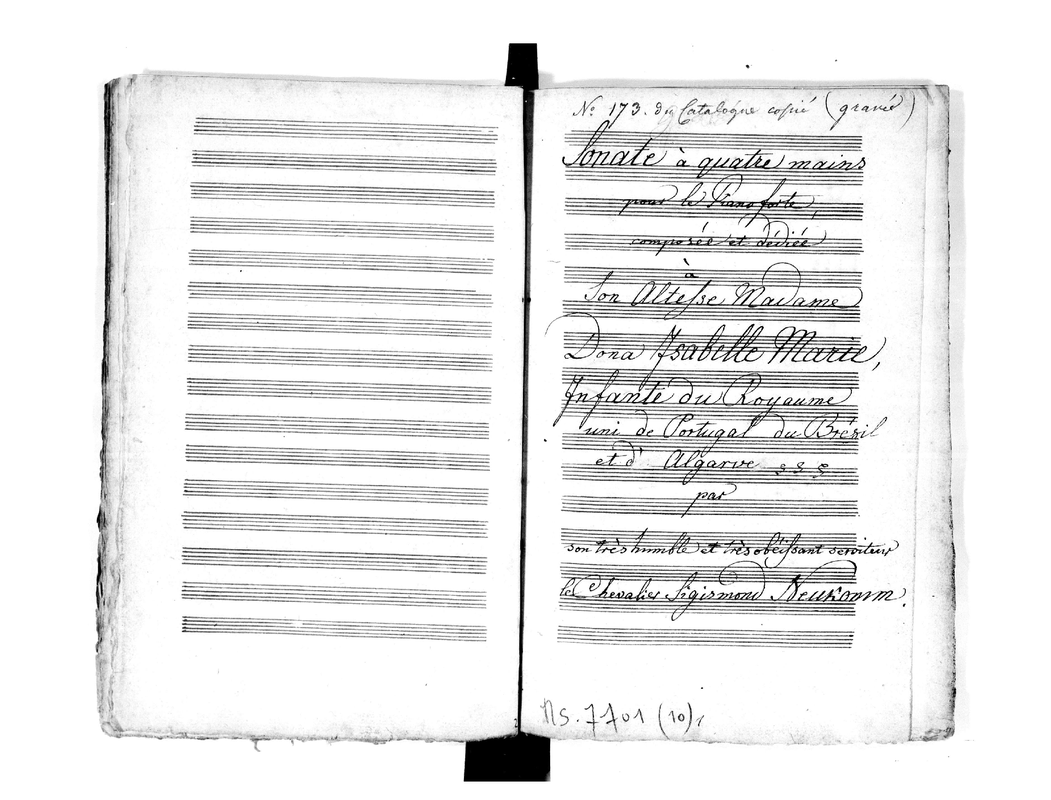 Nº 173. du Catalogue copié (gravé)
Sonate à quatre mains
pour le Piano forte,
composée et dédiée
à
Son Altesse Madame
Dona Isabelle Marie,
Infante du Royaume
uni de Portugal du Brésil
et d'Algarve
par
son très humble et très obéissant serviteur
le Chevalier Sigismond Neukomm.
Ms. 7701 (10)